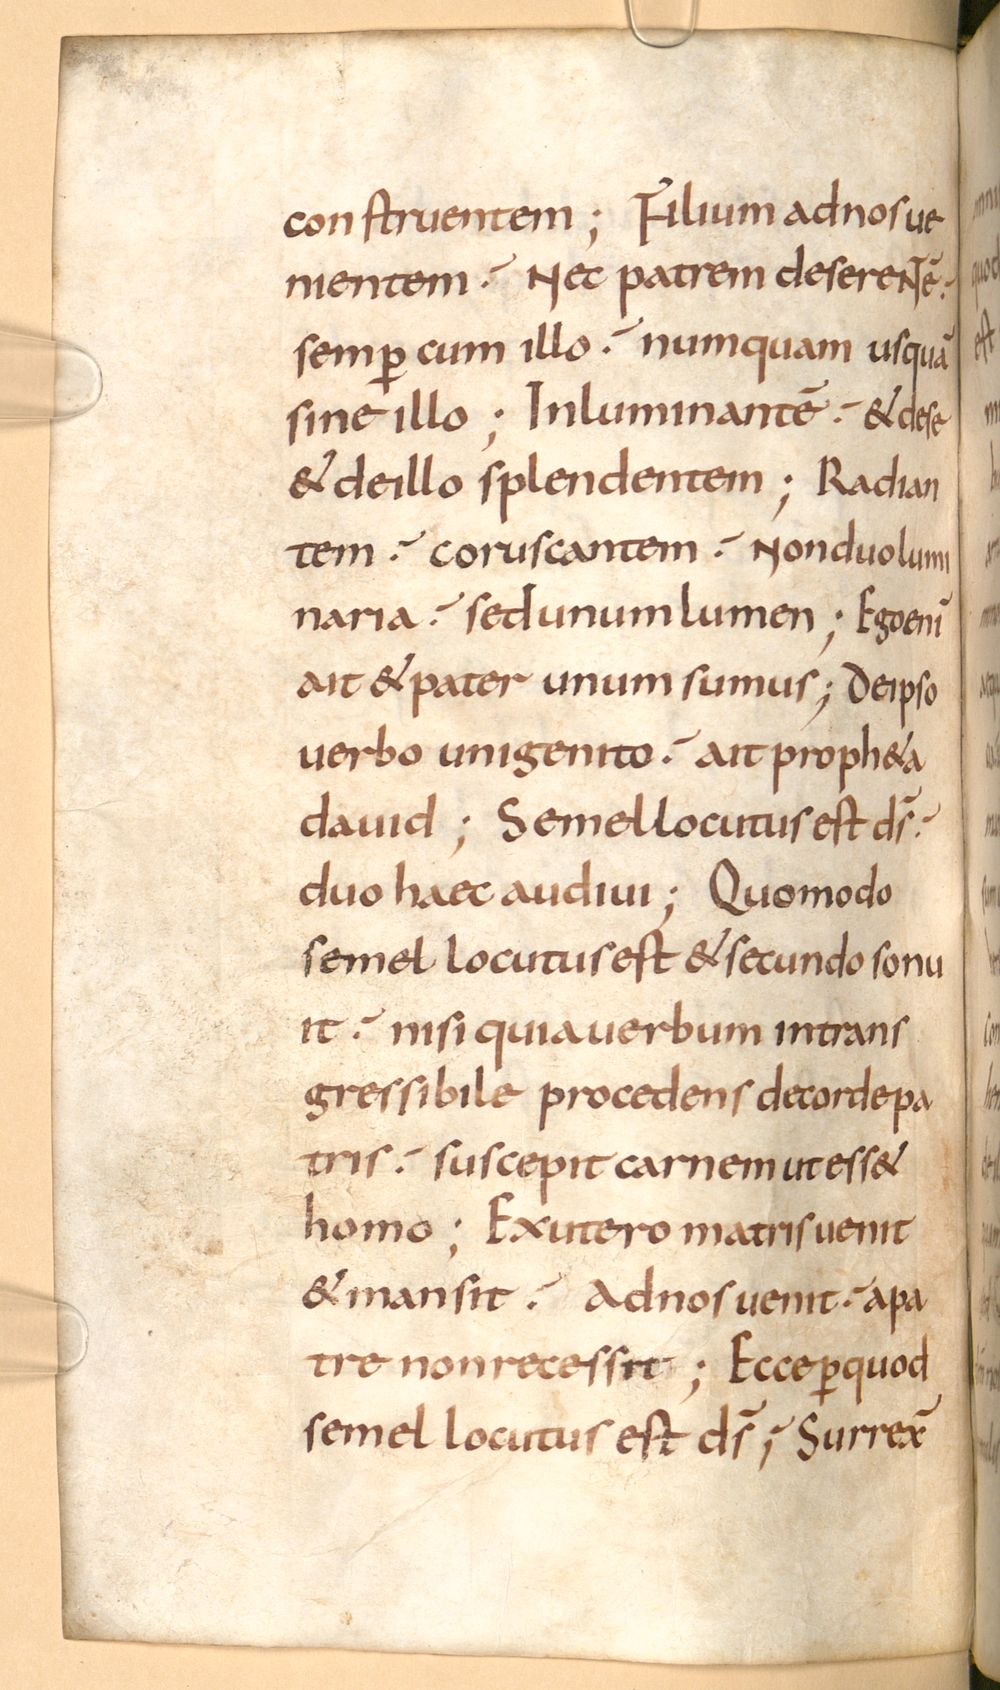 construentem; Filium adnosue
nientem·´ Nec patrem desereNTē·´
semꝑ cum illo·´ numquam usquā
sine illo; Inluminantē·´ &dese
& deillo splendentem; Radian
tem·´ coruscantem·´ Nonduolumi
naria·´ sedunumlumen; Egoenī
ait &pater unum sumus; Deipso
uerbo unigenito·´ ait proph&a
dauid; Semellocutusest ds̄·´
duo haec audiui; Quomodo
semel locutusest &secundo sonu
it·´ nisi quiauerbum intrans
gressibile procedens decordepa
tris·´ suscepit carnemutess&
homo; Exutero matrisuenit
&mansit·´ Adnosuenit·´ apa
tre nonrecessit; Ecceꝑquod
semel locutus est ds̄; Surrex̄